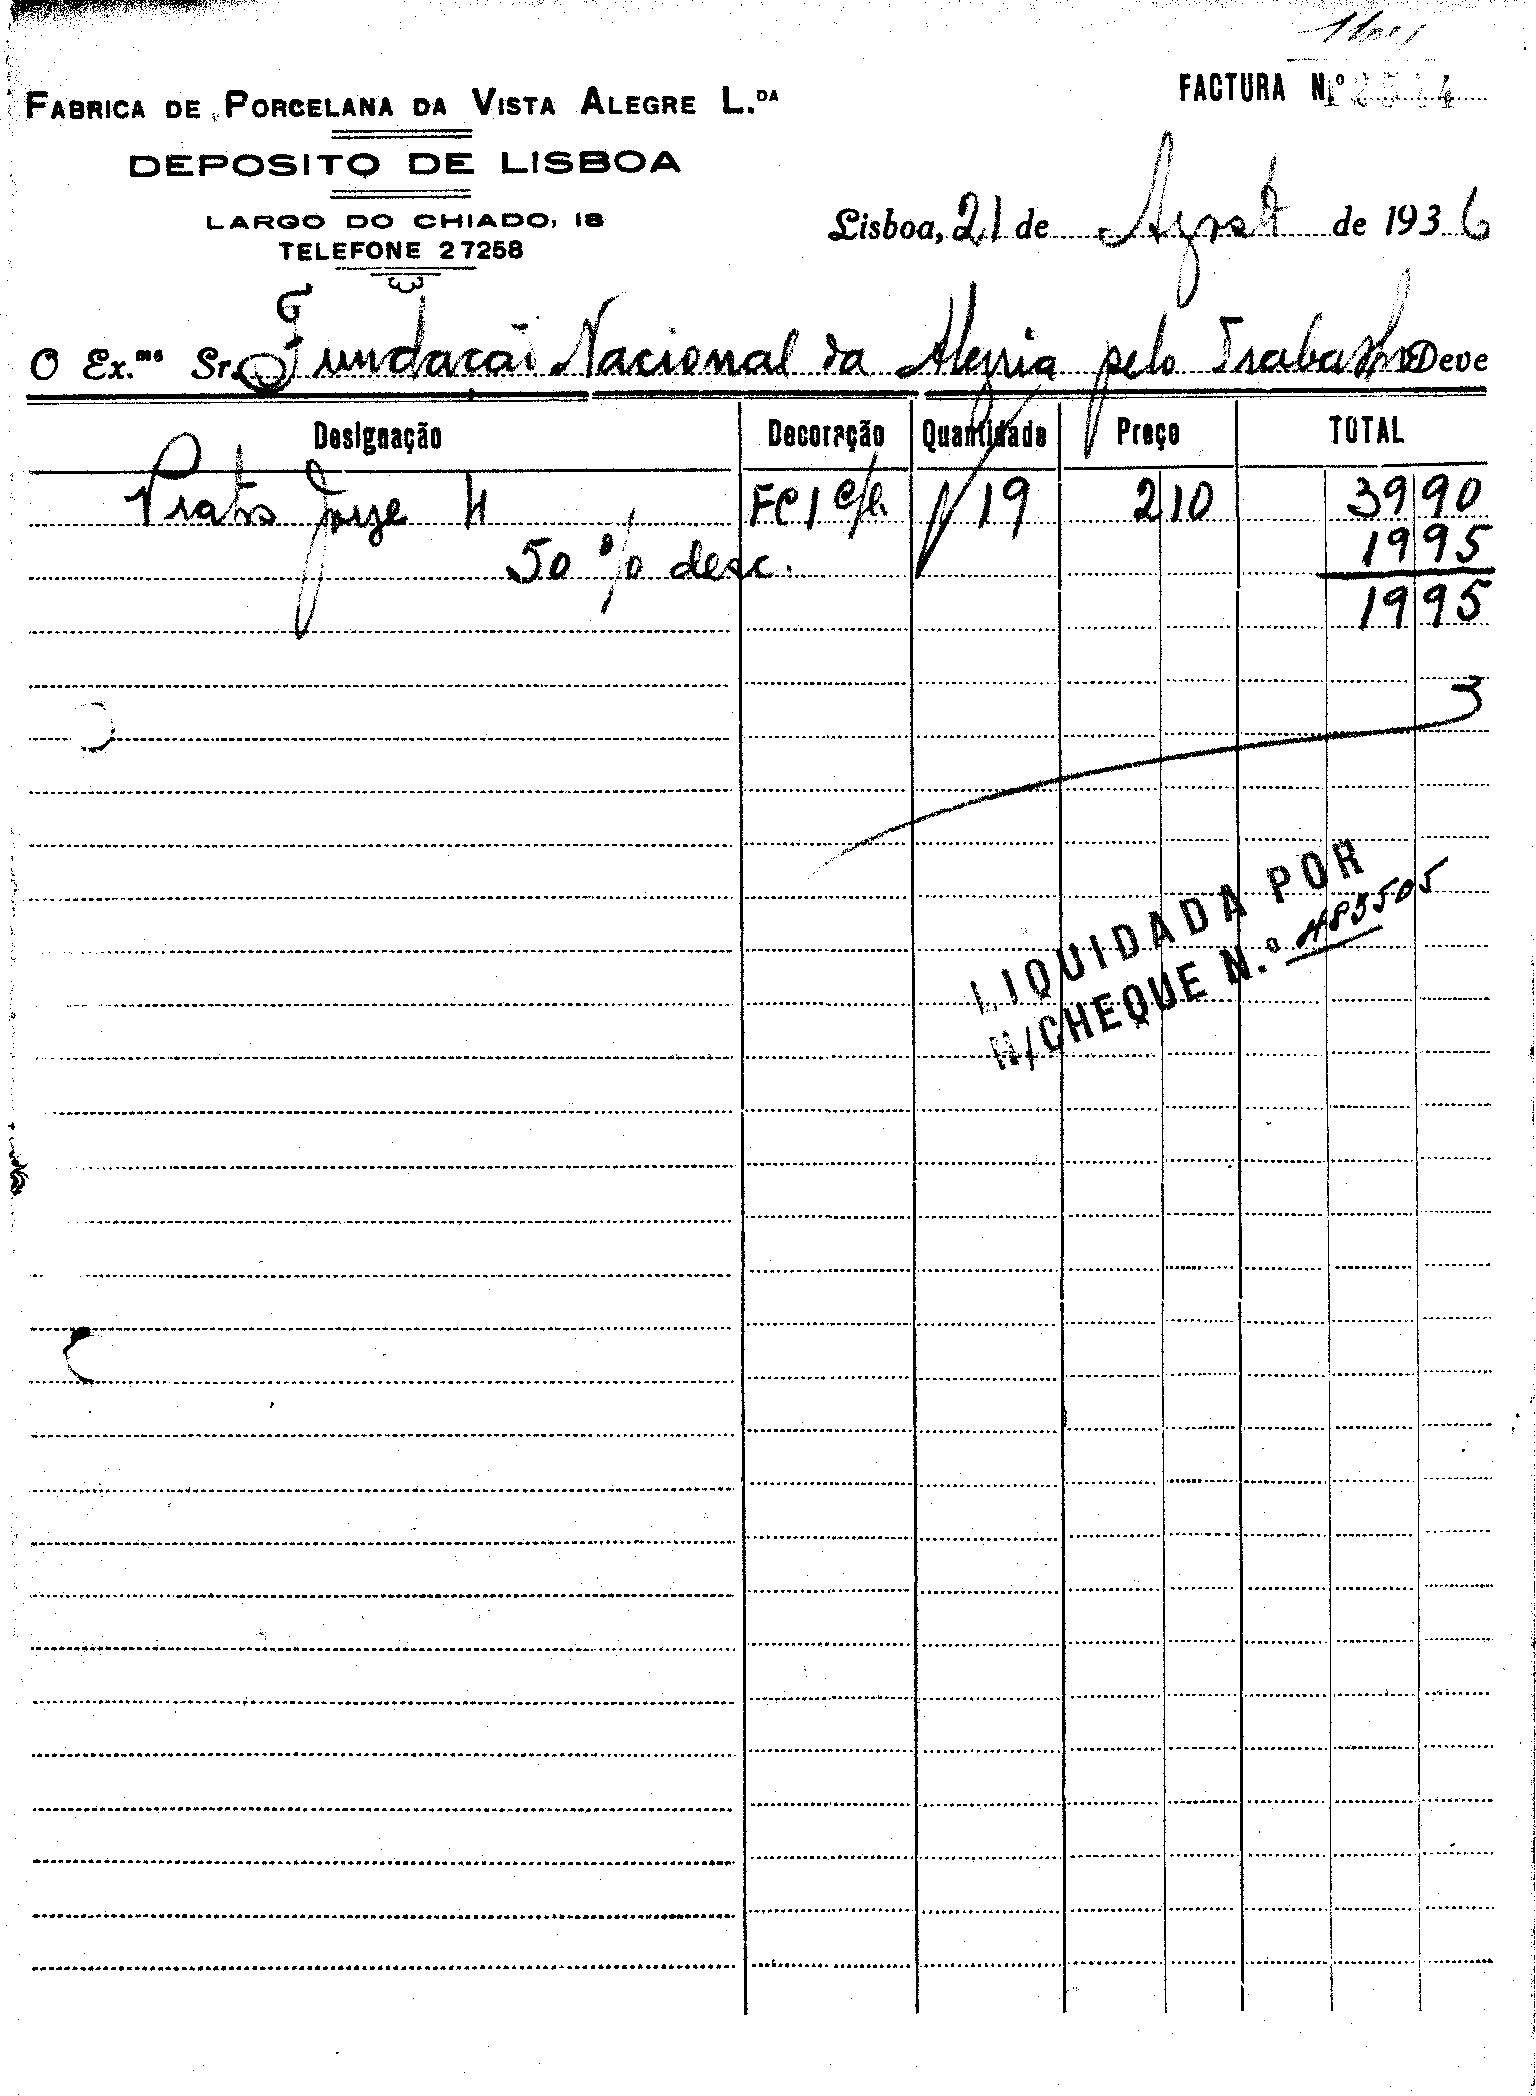 FABRICA DE PORCELANA DA VISTA ALEGRE L.DA
FACTURA N.º
DEPOSITO DE LISBOA
LARGO DO CHIADO, 18
TELEFONE 27258
Lisboa, 21 de Agosto de 1936
O Ex.mo Sr. Fundação Nacional da Alegria pelo Trabalho Deve
Designação Decoração Quantidade Preço TOTAL
Pratos Jorge H FC1 c/h 19 2 10 39 90
50 % desc. 19 95
19 95
LIQUIDADA POR
N/CHEQUE N.º 483505